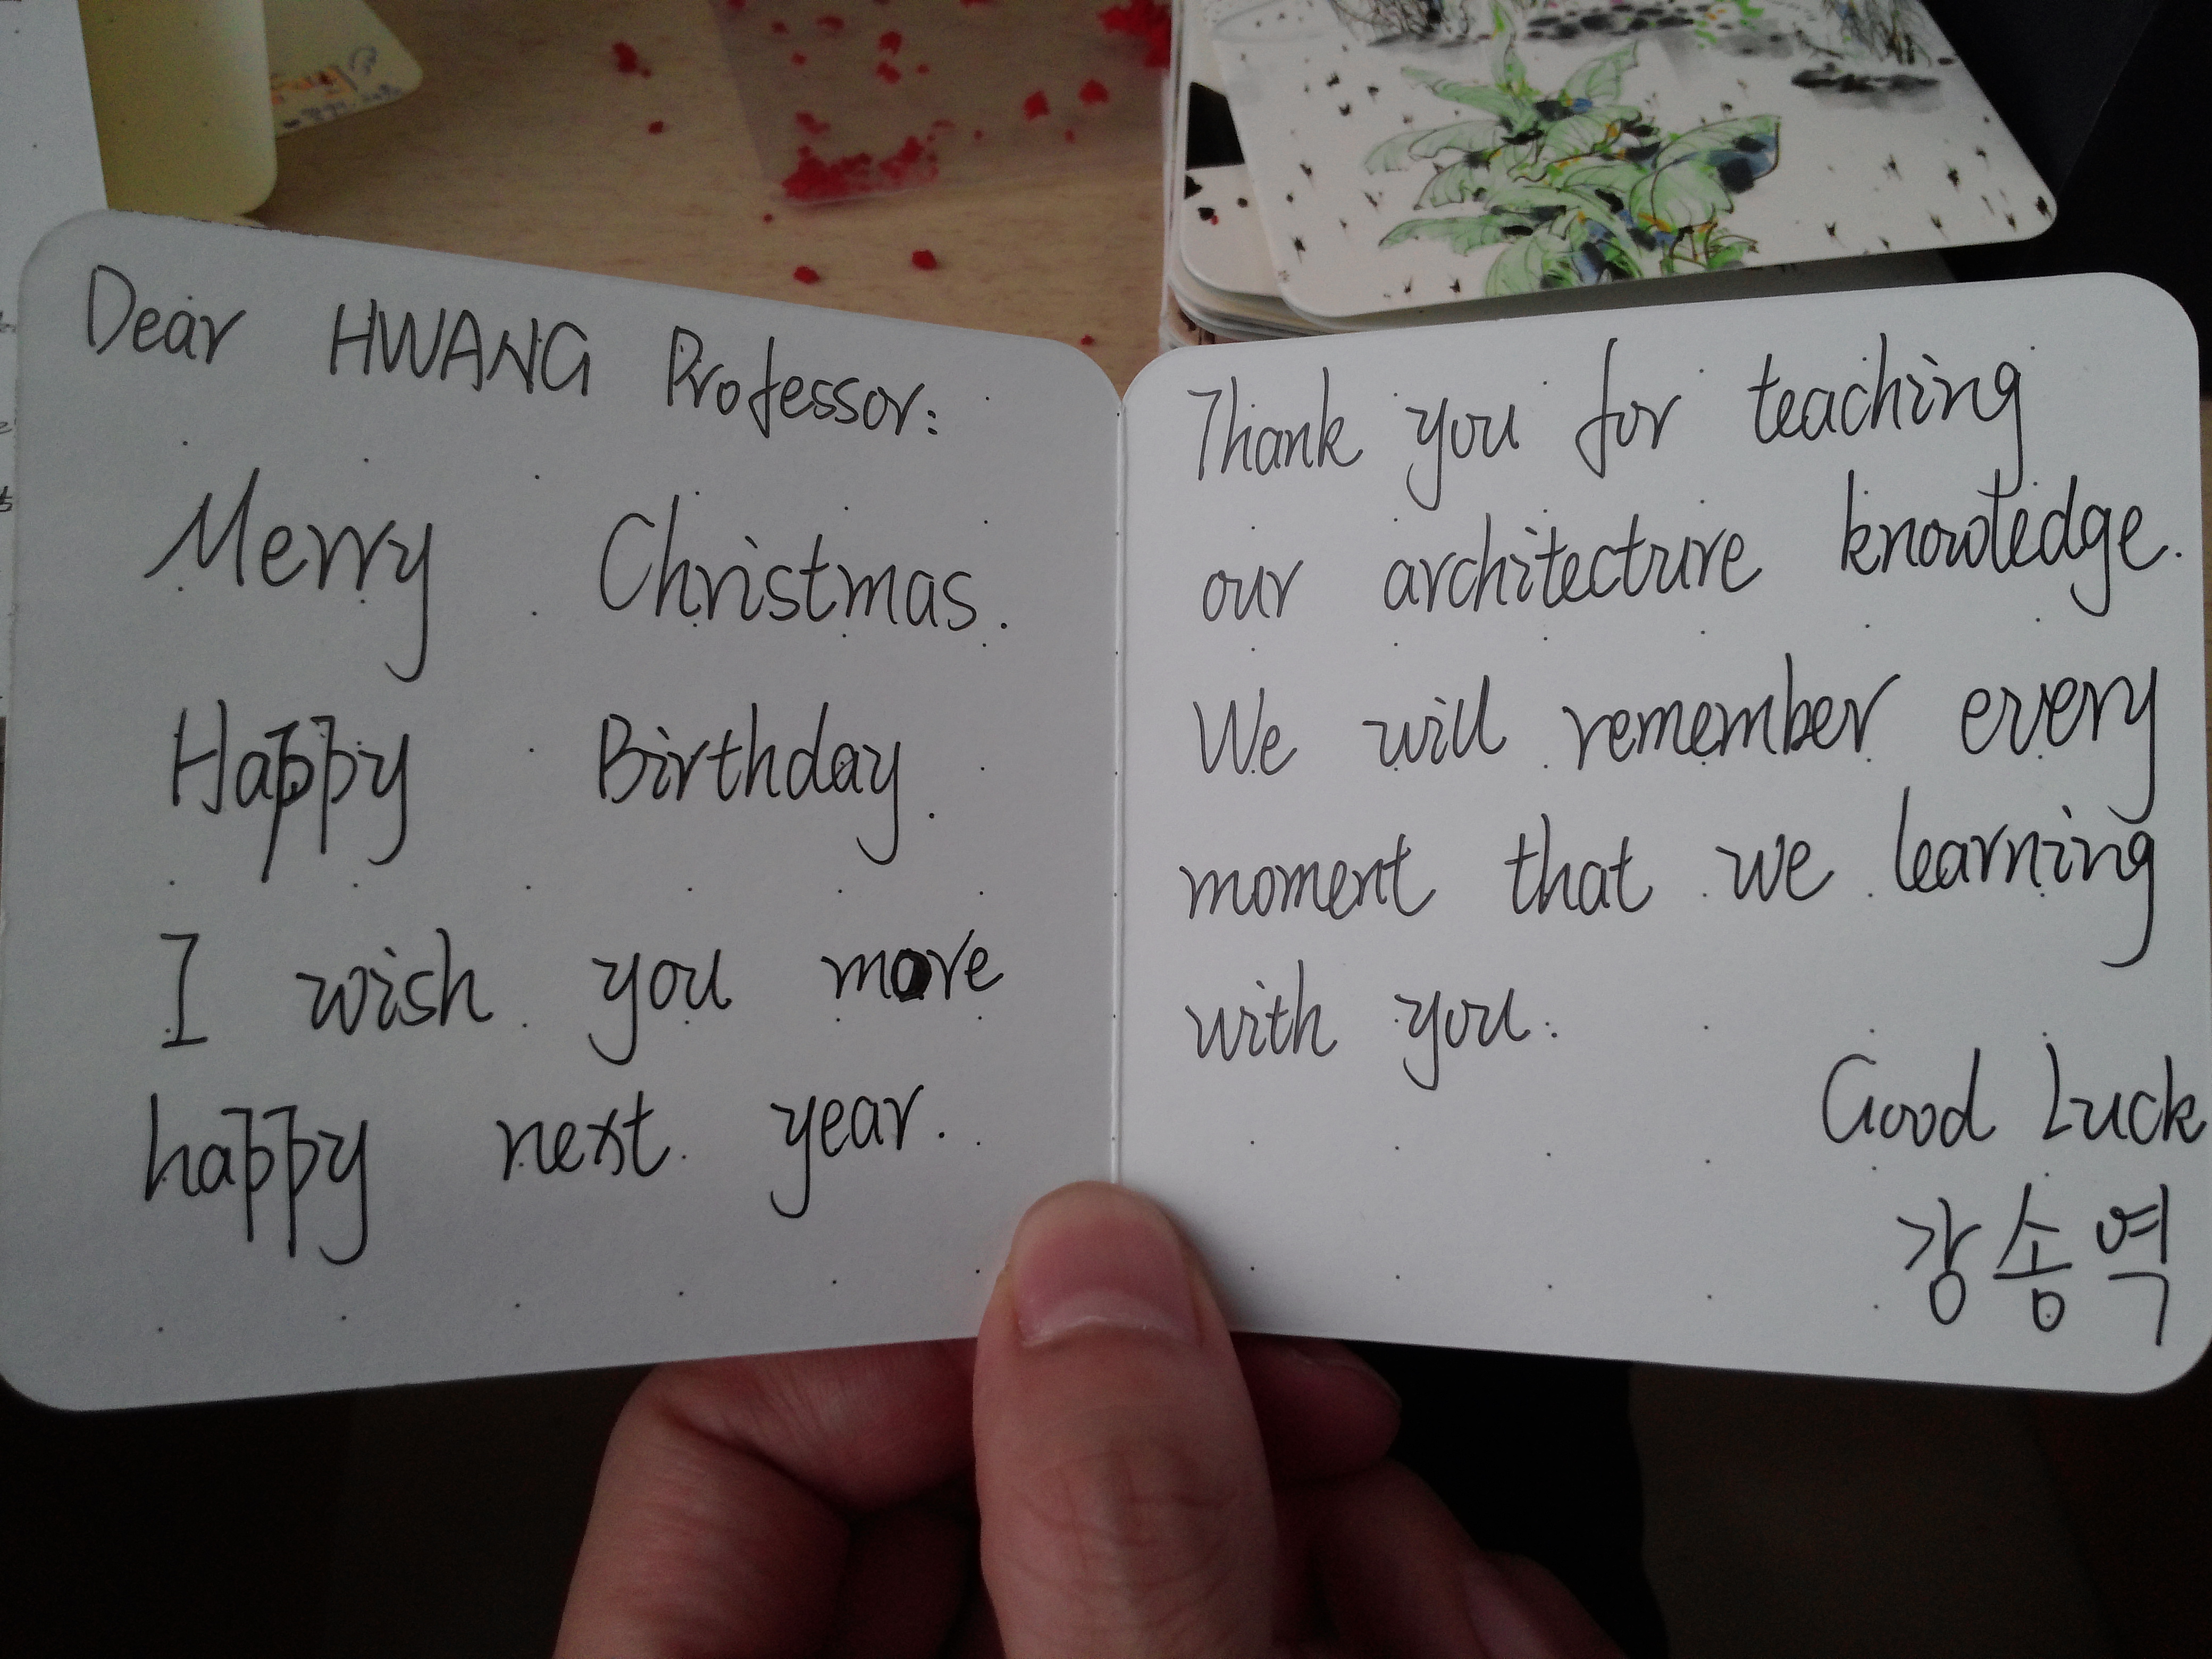 Dear HWANG Professor:
Merry Christmas.
Happy Birthday.
I wish you more
happy next year.
Thank you for teaching
our architecture knowledge.
We will remember every
moment that we learning
with you.
Good Luck
강송역